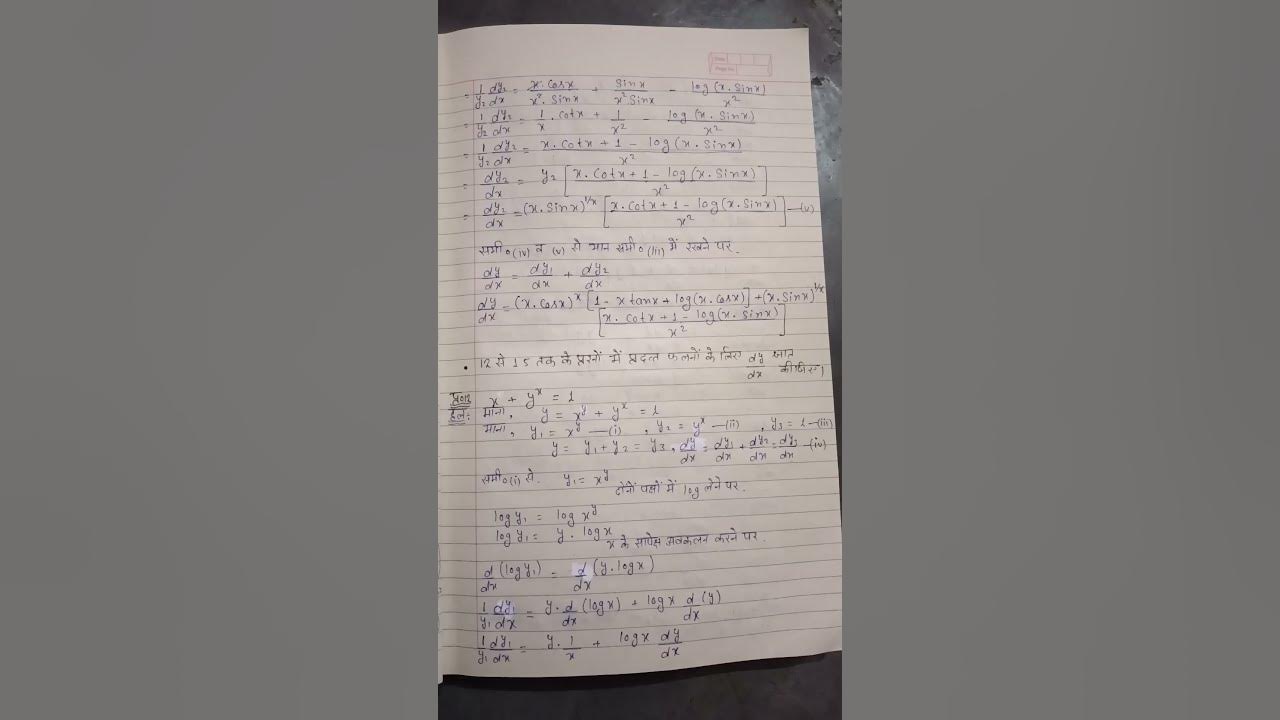 Date
Page No.
= 1/y₂ dy₂/dx = x·cosx/x²·sinx + sinx/x² sinx - log(x·sinx)/x²
= 1/y₂ dy₂/dx = 1/x · cotx + 1/x² - log(x·sinx)/x²
= 1/y₂ dy₂/dx = x·cotx + 1 - log(x·sinx)/x²
= dy₂/dx = y₂ [x·cotx + 1 - log(x·sinx)/x²]
= dy₂/dx = (x·sinx)^1/x [x·cotx + 1 - log(x·sinx)/x²] —(v)
समी०(iv) व (v) से मान समी०(iii) में रखने पर.
dy/dx = dy₁/dx + dy₂/dx
dy/dx = (x·cosx)^x [1 - x tanx + log(x·cosx)] + (x·sinx)^1/x
[x·cotx + 1 - log(x·sinx)/x²]
• 12 से 15 तक के प्रश्नों में प्रदत्त फलनों के लिए dy/dx ज्ञात
कीजिए।
प्र०12 x + y^x = 1
हल: माना, y = x^y + y^x = 1
माना, y₁ = x^y —(i), y₂ = y^x —(ii), y₃ = 1 —(iii)
y = y₁ + y₂ = y₃, dy/dx = dy₁/dx + dy₂/dx = dy₃/dx —(iv)
समी०(i) से. y₁ = x^y
दोनों पक्षों में log लेने पर.
log y₁ = log x^y
log y₁ = y · log x
x के सापेक्ष अवकलन करने पर.
d/dx (log y₁) = d/dx (y·logx)
1/y₁ dy₁/dx = y· d/dx (logx) + logx d/dx (y)
1/y₁ dy₁/dx = y· 1/x + logx dy/dx